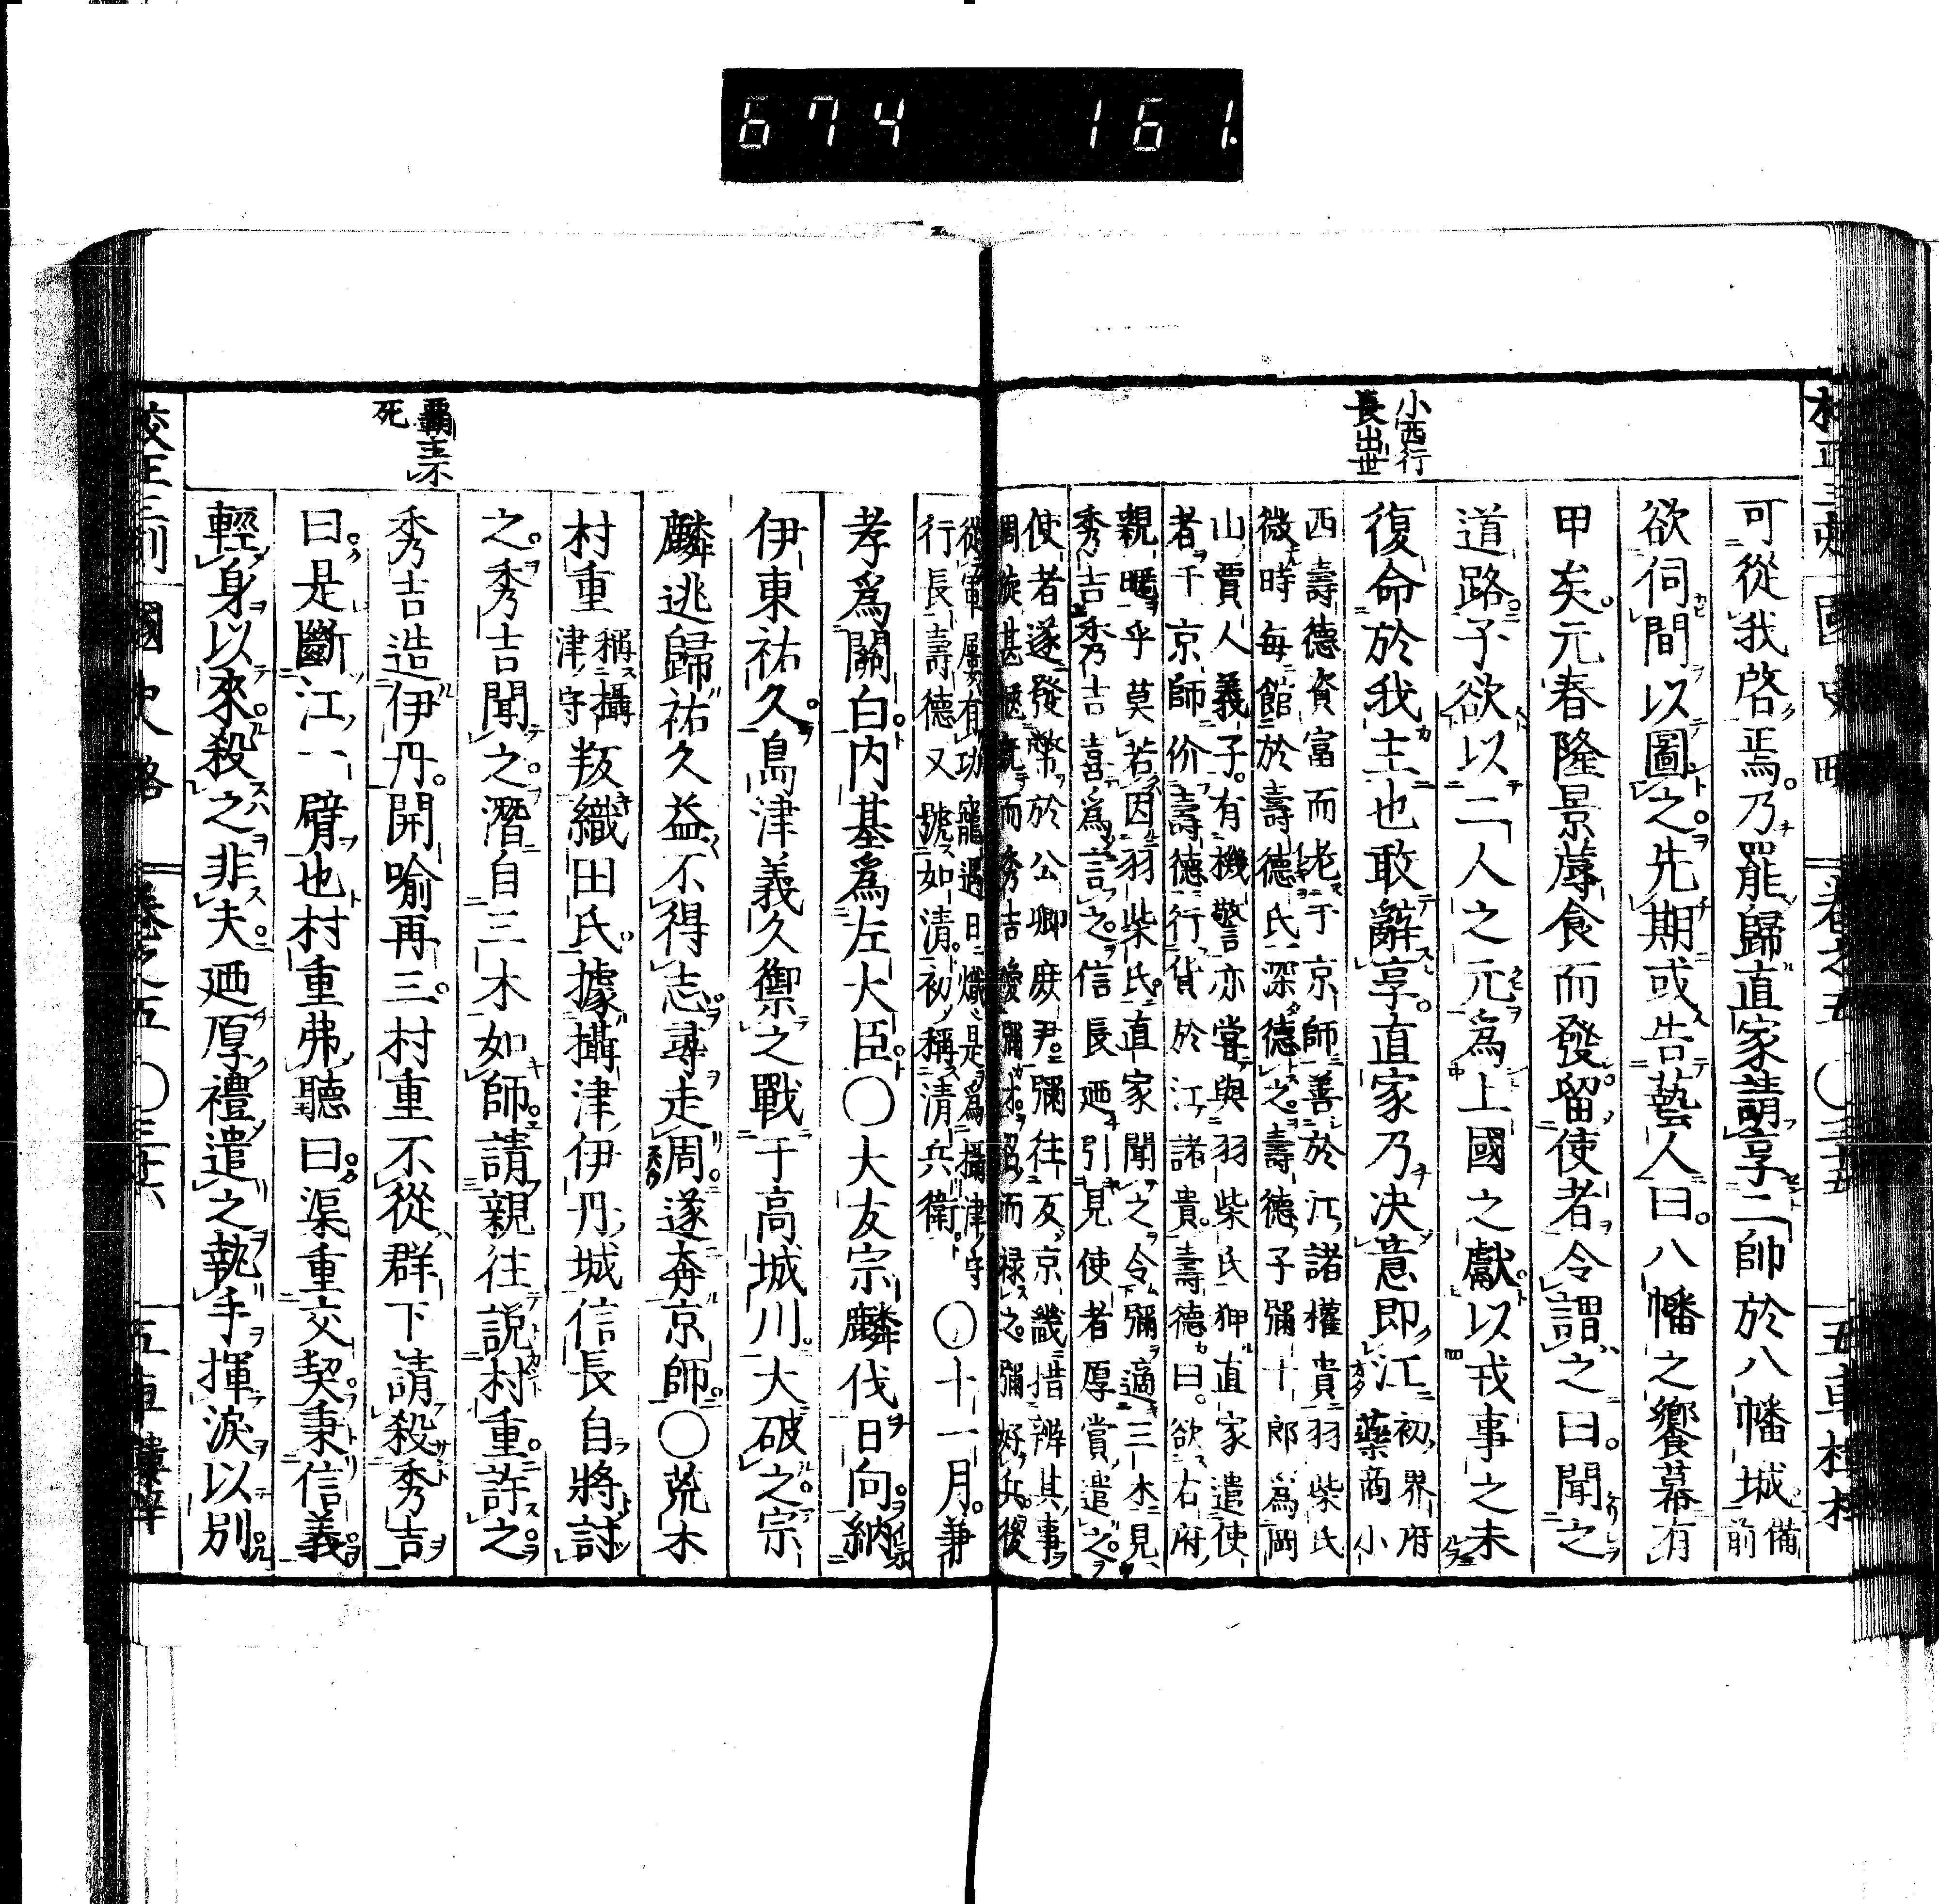 674 161.
小西行
長出世
可從我啓焉乃罷歸直家請享二帥於八幡城備前
欲伺間以圖之先期或告藝人曰八幡之饗幕有
甲矣元春隆景蓐食而發留使者令謂之曰聞之
道路子欲以二人之元爲上國之獻以戎事之未
復命於我主也敢辭享直家乃决意即江初界府藥商小
西壽德資富而老于京師善於江諸權貴羽柴氏
微時毎館於壽德氏深德之壽德子彌十郎爲岡
山賈人義子有機警亦嘗與羽柴氏狎直家遣使
者于京師价壽德行貨於江諸貴壽德曰欲右府
親暱乎莫若因羽柴氏直家聞之令彌適三木見
秀吉秀吉喜爲言之信長廼引見使者厚賞遣之
使者遂發幣於公卿庶尹彌往反京畿措辨其事
周旋甚愜既而秀吉愛彌才招而祿之彌好兵後
從軍屢有功寵遇日熾是爲攝津守
行長壽德又號如清初稱清兵衛〇十一月兼
孝爲關白内基爲左大臣〇大友宗麟伐日向納
伊東祐久島津義久禦之戰于高城川大破之宗
麟逃歸祐久益不得志尋走周遂奔京師〇荒木
村重稱攝津守叛織田氏據攝津伊丹城信長自將討
之秀吉聞之潛自三木如師請親往說村重許之
秀吉造伊丹開喻再三村重不從群下請殺秀吉
曰是斷江一臂也村重弗聽曰渠重交契秉信義
輕身以來殺之非夫廼厚禮遣之執手揮淚以別
霸主不
死